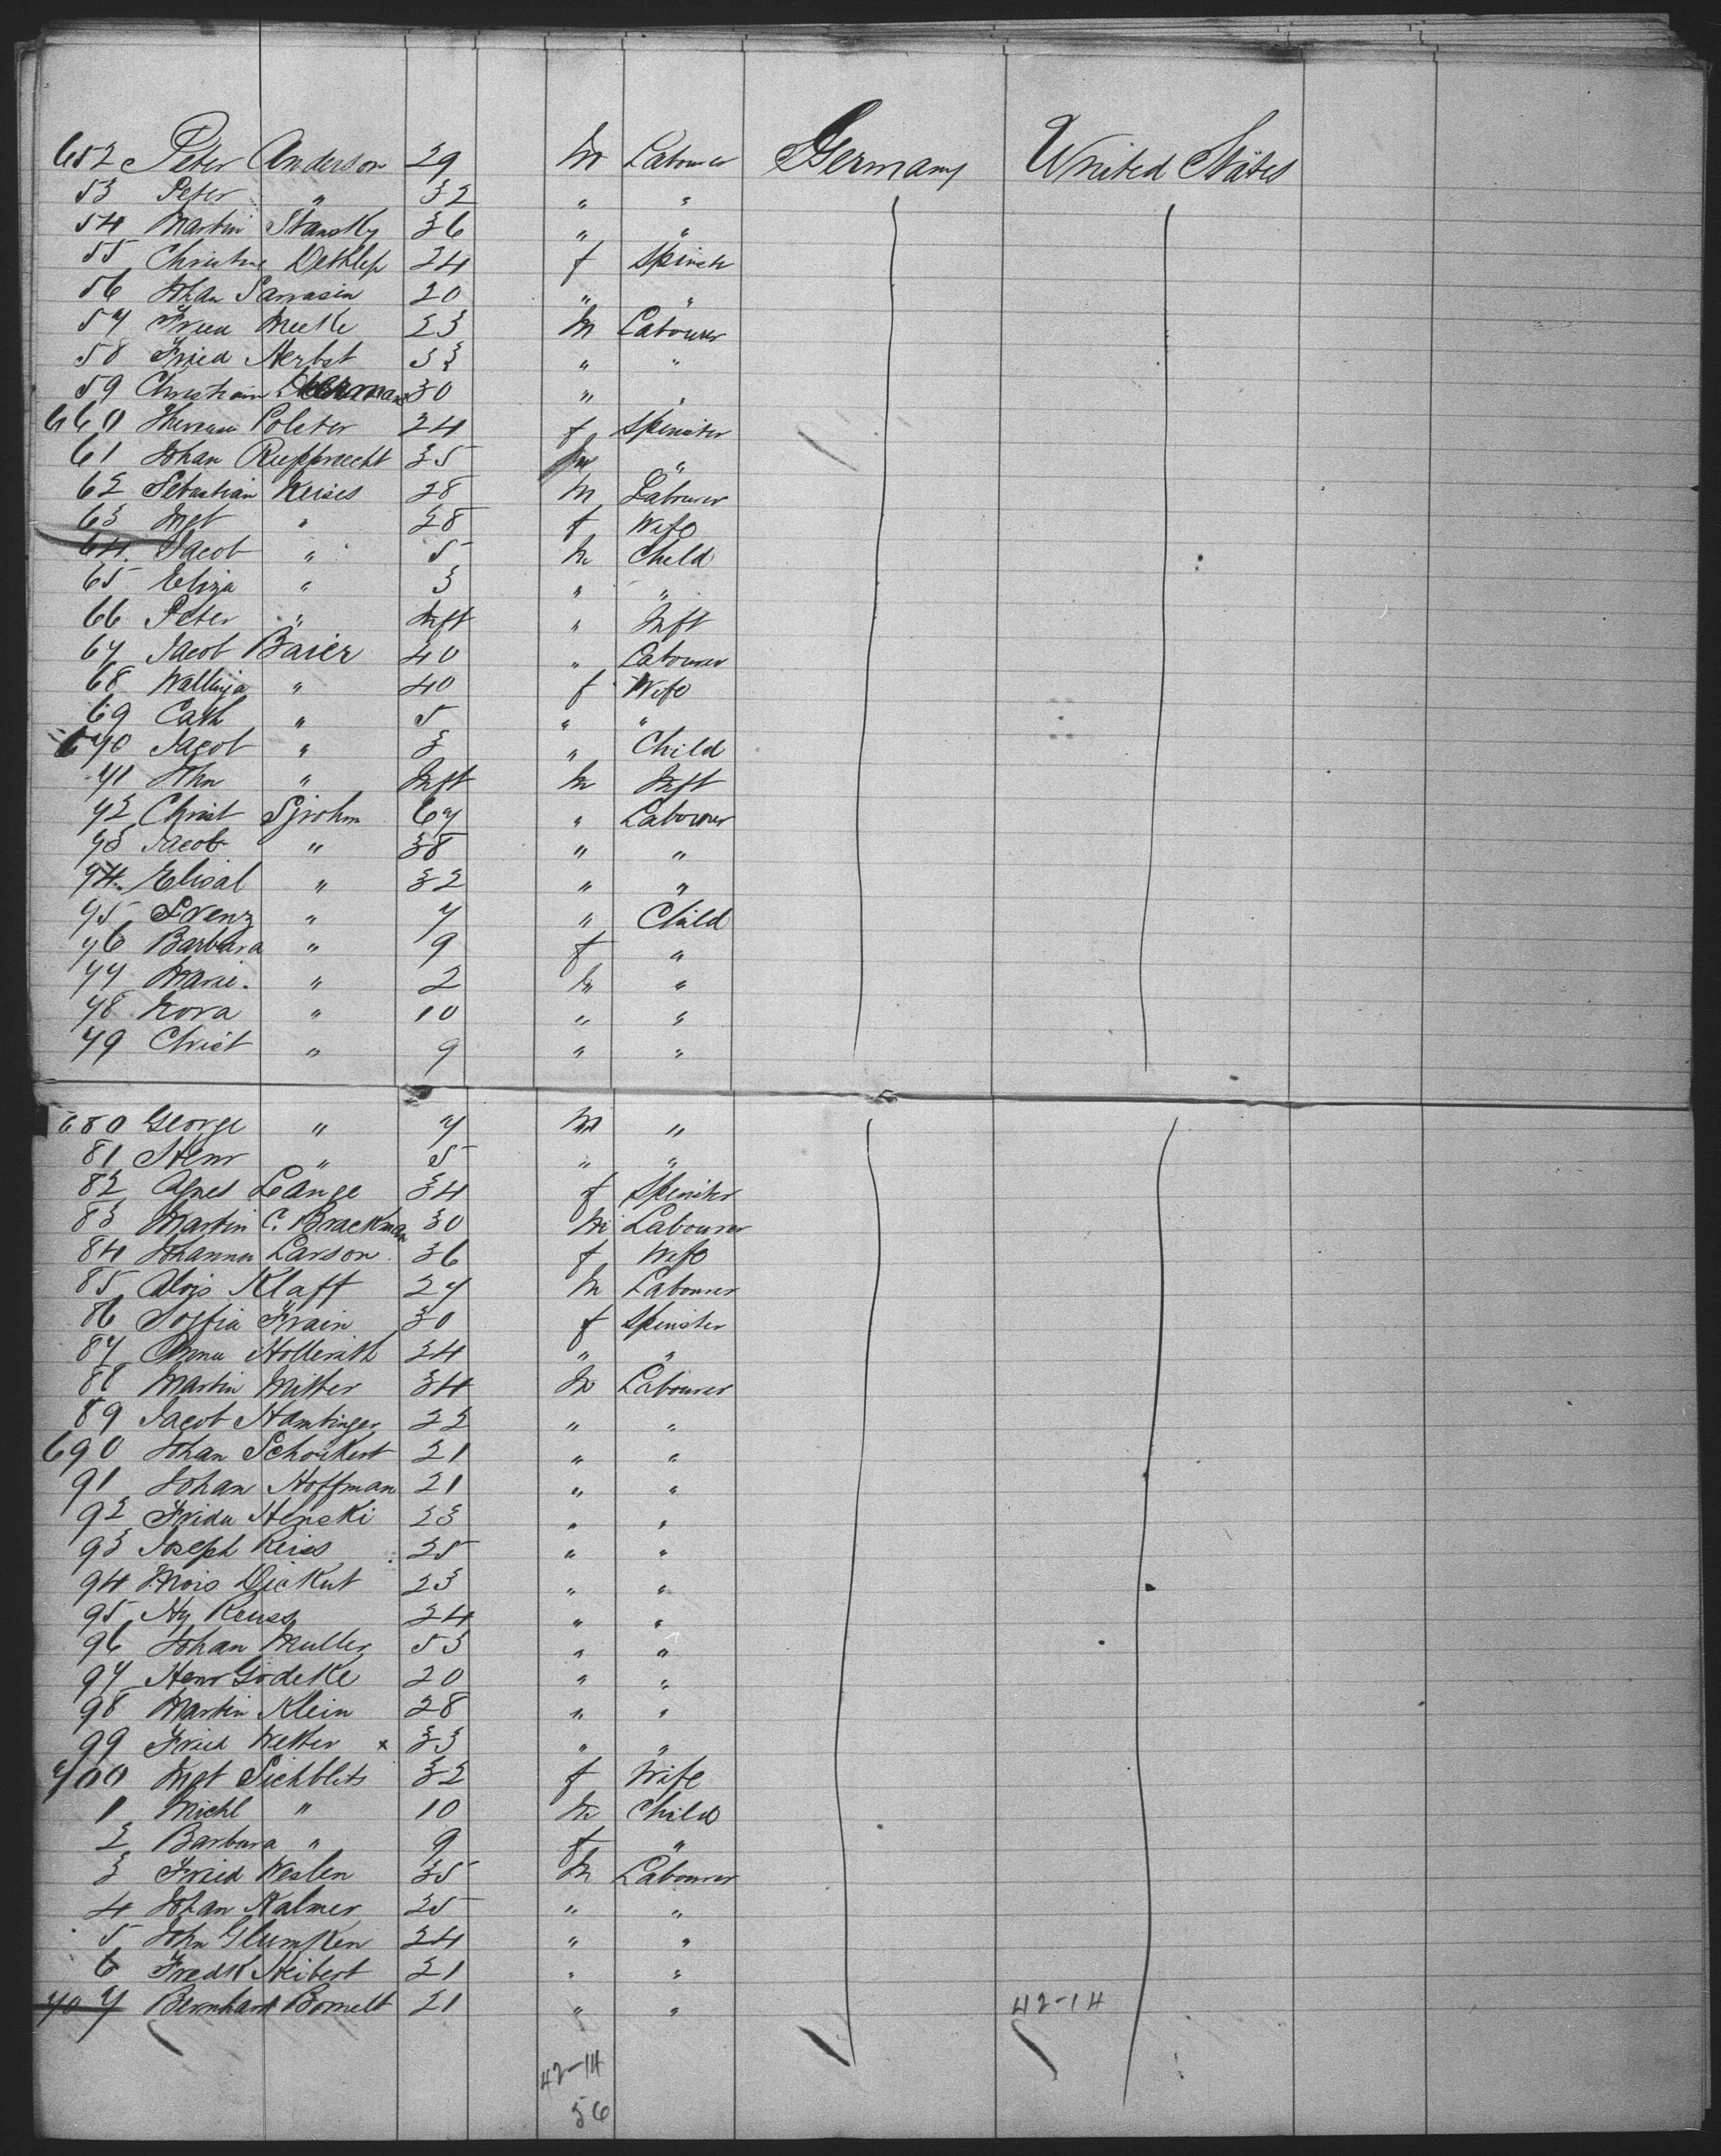 652 Peter Anderson 29 M Labourer Germany United States
53 Peter " 32 " "
54 Martin Stansky 36 " "
55 Christine Dethlef 24 f Spinstr
56 Johan Sarrasin 20 " "
57 Fried Mieke 23 M Labourer
58 Fried Herbst 33 " "
59 Christian 30 " "
660 Polster 24 f Spinster
61 Johan Rupprecht 35 "
62 Sebastian Keises 28 M Labourer
63 Mgt " 28 f Wife
64 Jacob " 5 M Child
65 Eliza " 3 " "
66 Peter " Inft " Inft
67 Jacob Baier 40 " Labourer
68 " 40 f Wife
69 Cath " 5 " "
670 Jacob " 3 " Child
71 Jhn " Inft M Inft
72 Christ Sjrohm 67 " Labourer
73 Jacob " 38 " "
74 Elisal " 32 " "
75 Lorenz " 7 " Child
76 Barbara " 9 f "
77 Marie " 2 M "
78 Nora " 10 " "
79 Christ " 9 " "
680 George " 7 M "
81 Henr " 5 " "
82 Agnes Lange 34 f Spinster
83 Martin C. Brackman 30 M Labourer
84 Johanna Larson 36 f Wife
85 Alois Klaff 27 M Labourer
86 Sophia Frain 30 f Spinster
87 Anna Hollerith 24 " "
88 Martin Mitter 34 M Labourer
89 Jacob Hambinger 22 " "
690 Johan Schoikert 21 " "
91 Johan Hoffman 21 " "
92 Frida Henski 23 " "
93 Joseph Reiss 25 " "
94 Dickut 23 " "
95 Hy Reuss 24 " "
96 Johan Muller 53 " "
97 Henr Godeke 20 " "
98 Martin Klein 28 " "
99 Fried Wetter x 33 " "
700 Mgt Sichblits 32 f Wife
1 Michl " 10 M Child
2 Barbara " 9 f "
3 Fried Weslen 35 M Labourer
4 Johan Kalmer 25 " "
5 John Glumpken 24 " "
6 Fredk Heibert 21 " "
707 Bernhard Bomelt 21 " " 42-14
42-14
56